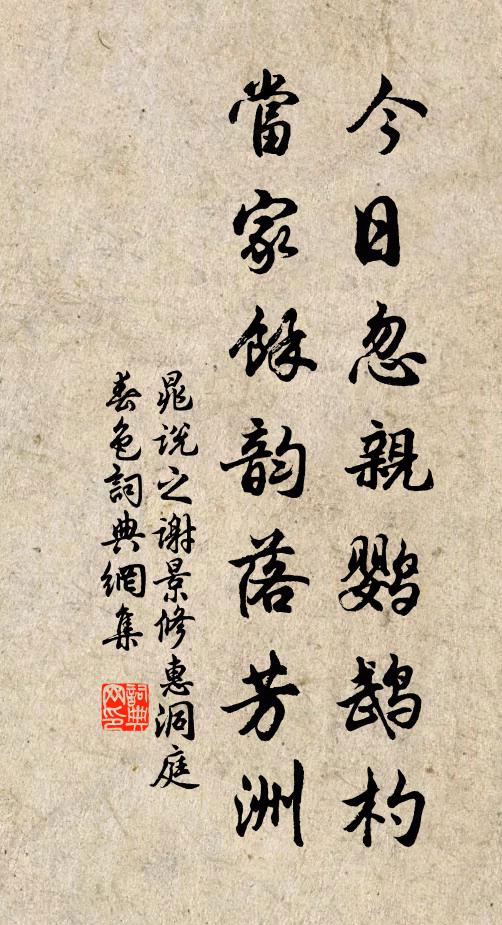 今日忽親鹦鵡杓
當家餘韵落芳洲
晁说之谢景修惠洞庭
春色詞典網集
詞典网印